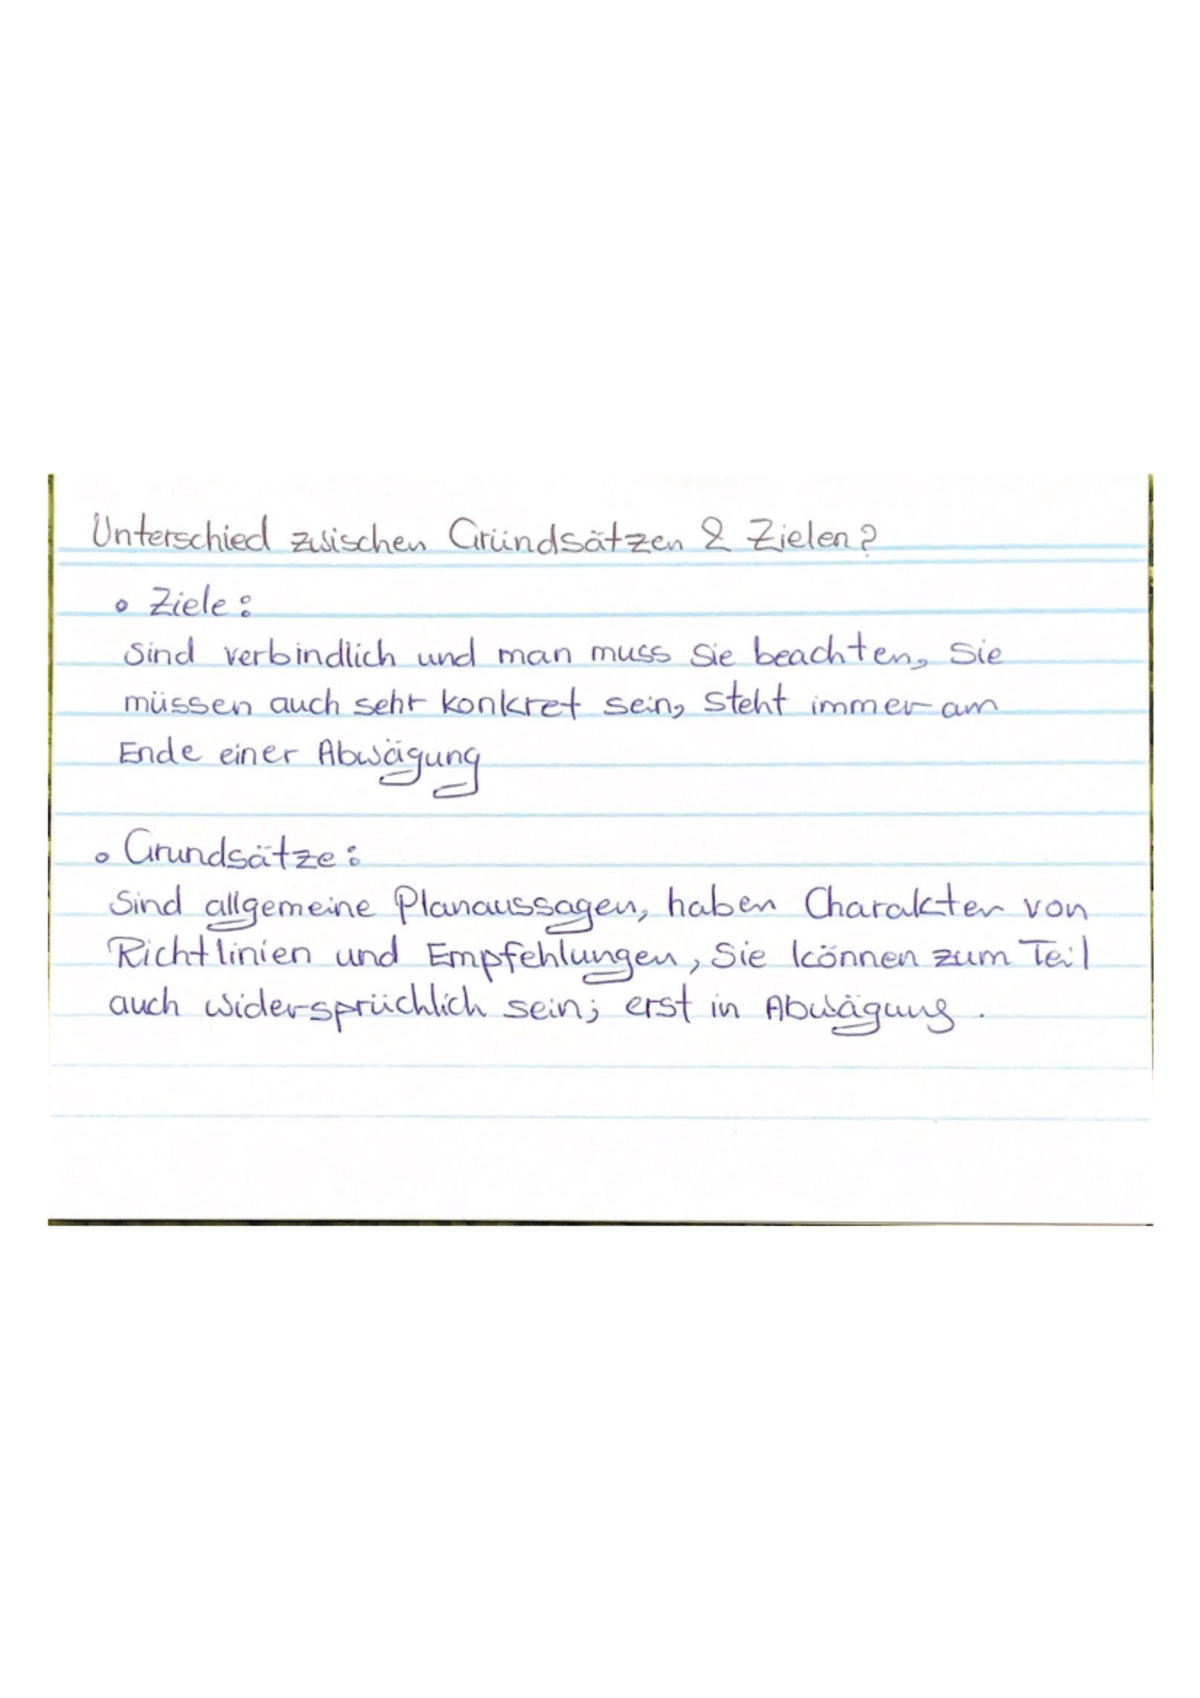 Unterschied zwischen Gründsätzen & Zielen?
• Ziele:
Sind verbindlich und man muss sie beachten, Sie
müssen auch sehr konkret sein, steht immer am
Ende einer Abwägung
• Grundsätze:
Sind allgemeine Planaussagen, haben Charakter von
Richtlinien und Empfehlungen, Sie können zum Teil
auch widersprüchlich sein; erst in Abwägung.